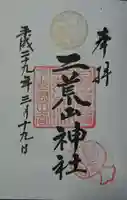 奉拝
二荒山神社
平成二十九年三月十九日